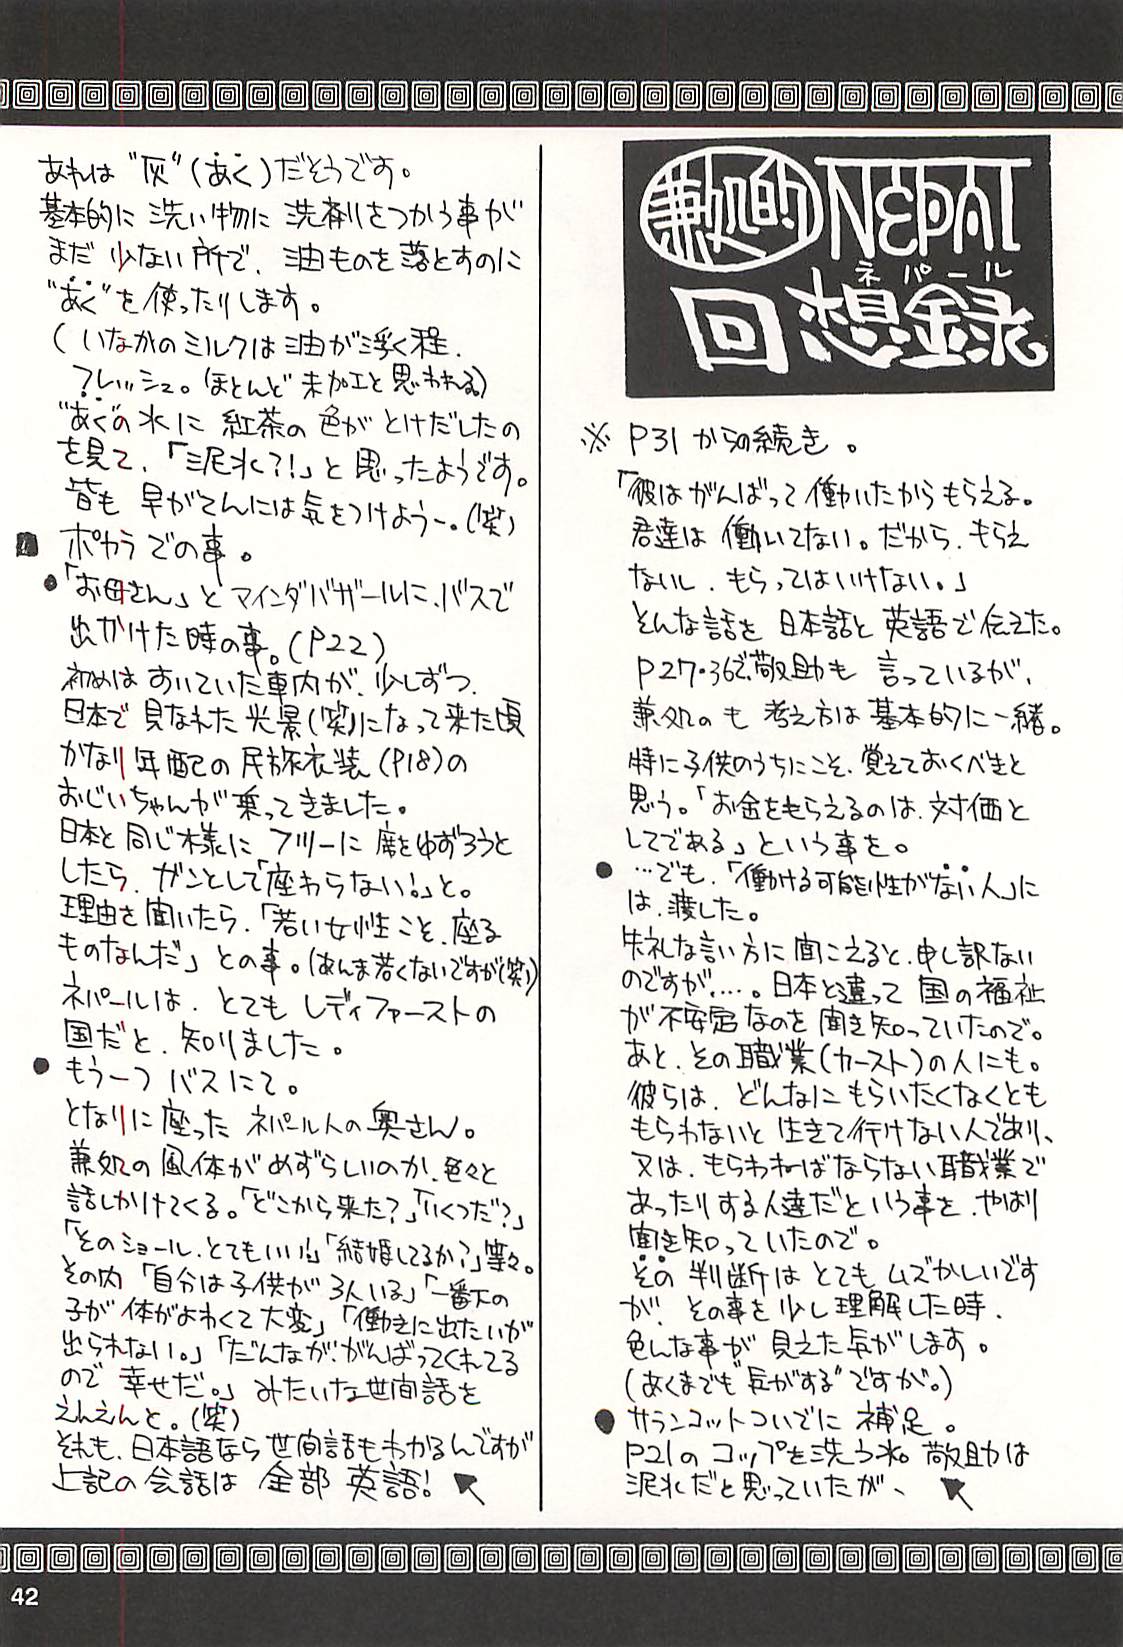 兼処的 NEPAL
ネパール
回想録
※ P31からの続き。
「彼はがんばって働いたからもらえる。
君達は働いてない。だから、もらえ
ないし、もらってはいけない。」
そんな話を日本語と英語で伝えた。
P27・36で敬助も言っているが、
兼処のも考え方は基本的に一緒。
特に子供のうちにこそ、覚えておくべきと
思う。「お金をもらえるのは、対価と
してである」という事を。
●…でも、「働ける可能性がない人」に
は、渡した。
失礼な言い方に聞こえると、申し訳ない
のですが…。日本と違って国の福祉
が不安定なのを聞き知っていたので。
あと、その職業(カースト)の人にも。
彼らは、どんなにもらいたくなくとも
もらわないと生きて行けない人であり、
又は、もらわねばならない職業で
あったりする人達だという事を、やはり
聞き知っていたので。
その判断はとてもムズかしいです
が、その事を少し理解した時、
色んな事が見えた気がします。
(あくまでも"気がする"ですが。)
●サランコットついでに補足。
P21のコップを洗う水。敬助は
泥水だと思っていたが、
あれは"灰"(あく)だそうです。
基本的に洗い物に洗剤をつかう事が
まだ少ない所で、油ものを落とすのに
"あく"を使ったりします。
(いなかのミルクは油が浮く程、
フレッシュ。(ほとんど未加工と思われる)
"あく"の水に紅茶の色がとけだしたの
を見て、「泥水?!」と思ったようです。
皆も早がてんには気をつけよう〜。(笑)
■ポカラでの事。
●「お母さん」とマインダバザールに、バスで
出かけた時の事。(P22)
初めはすいていた車内が、少しずつ、
日本で見なれた光景(笑)になって来た頃
かなり年配の民族衣装(P18)の
おじいちゃんが乗ってきました。
日本と同じ様にフツーに席をゆずろうと
したら、ガンとして「座わらない!」と。
理由を聞いたら、「若い女性こそ、座る
ものなんだ」との事。(あんま若くないですが(笑))
ネパールは、とてもレディファーストの
国だと、知りました。
●もう一つバスにて。
となりに座ったネパール人の奥さん。
兼処の風体がめずらしいのか、色々と
話しかけてくる。「どこから来た?」「いくつだ?」
「そのショール、とてもいい!」「結婚してるか?」等々。
その内「自分は子供が3人いる」「一番下の
子が体がよわくて大変」「働きに出たいが
出られない。」「だんなが、がんばってくれてる
ので幸せだ。」みたいな世間話を
えんえんと。(笑)
それも、日本語なら世間話もわかるんですが
上記の会話は全部英語!
42